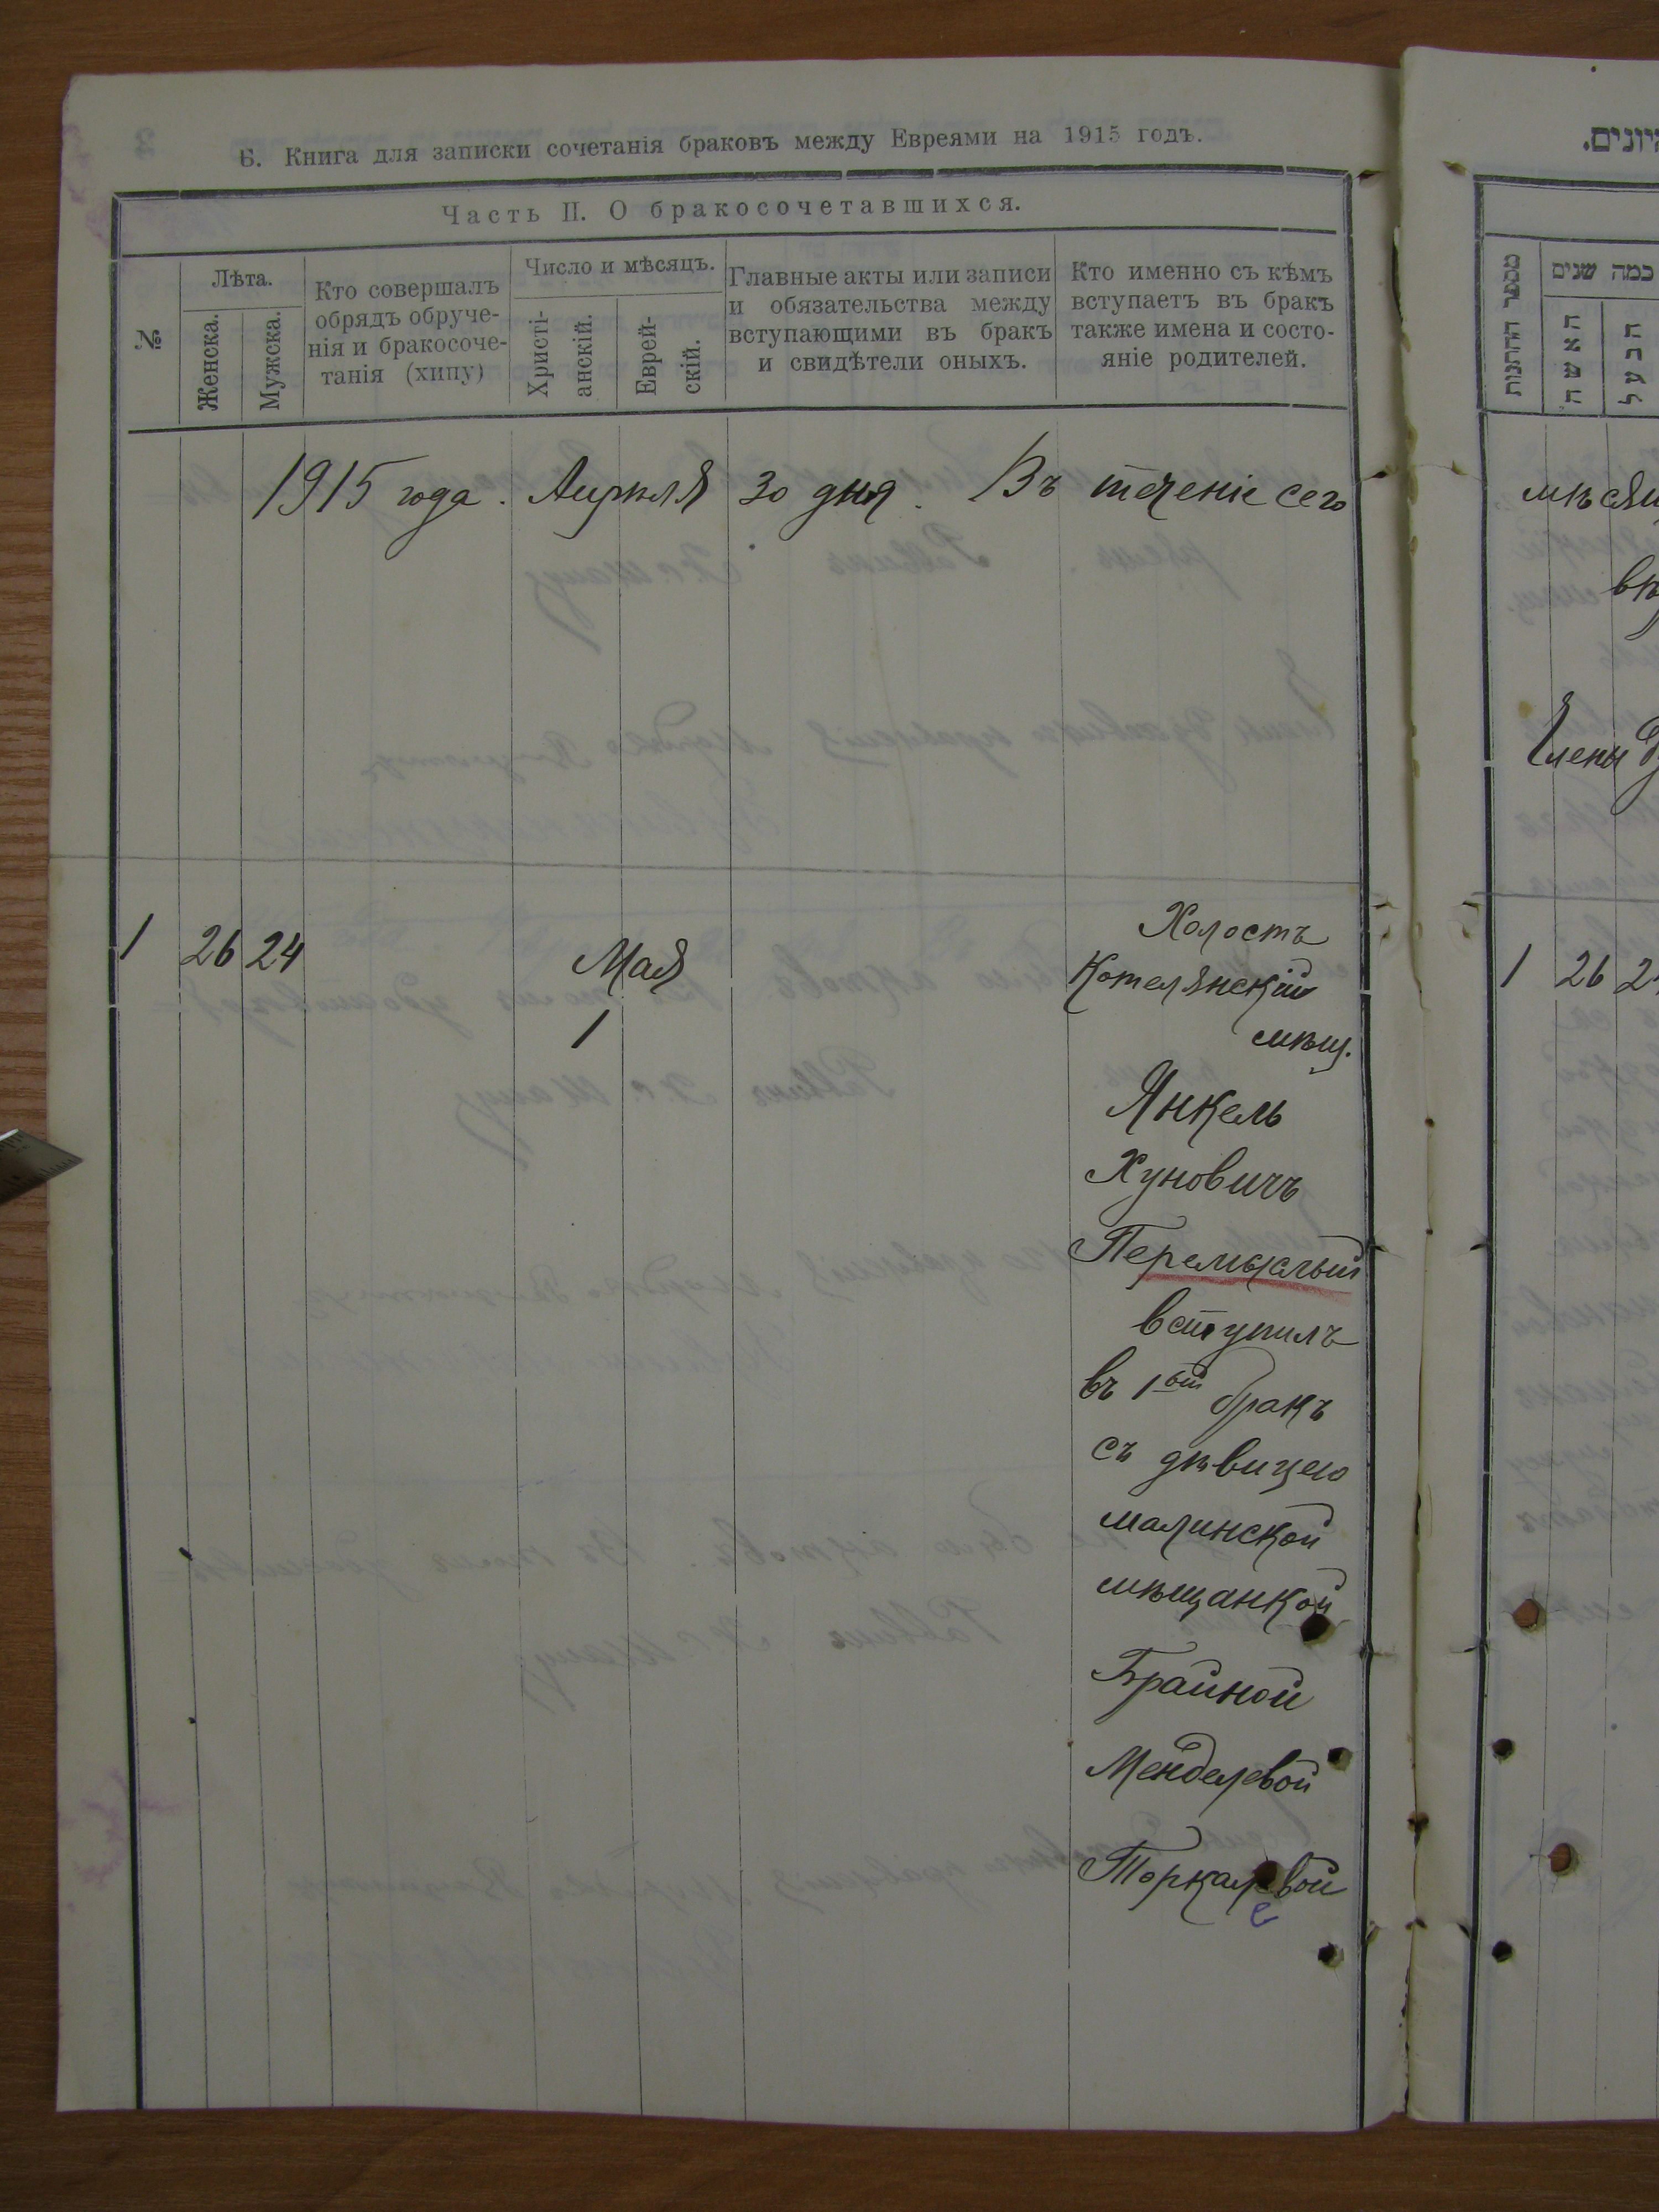 Б. Книга для записки сочетанія браковъ между Евреями на 1915 годъ.
Часть II. О бракосочетавшихся.
№
Лѣта.
Женска.
Мужска.
Кто совершалъ
обрядъ обруче-
нія и бракосоче-
танія (хипу)
Число и мѣсяцъ.
Христі-
анскій.
Еврей-
скій.
Главные акты или записи
и обязательства между
вступающими въ бракъ
и свидѣтели оныхъ.
Кто именно съ кѣмъ
вступаетъ въ бракъ
также имена и состо-
яніе родителей.
1915 года. Апрѣля 30 дня. Въ теченіе сего
1 26 24
Мая
1
Холостъ
Котелянскій
мѣщ.
Янкель
Хуновичъ
вступилъ
въ 1ый бракъ
съ дѣвицею
малинской
мѣщанкой
Брайной
Менделевой
מספר החתונות
כמה שנים
האשה
הבעל
мѣсяц
1 26 24